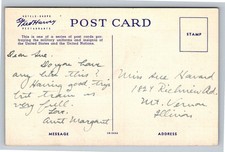 HOTELS SHOPS
Fred Harvey
RESTAURANTS
POST CARD
This is one of a series of post cards por-
traying the military uniforms and insignia of
the United States and the United Nations.
STAMP
Dear Sue,
Do you have
any like this?
Having good trip
but train is
very full.
Love
Aunt Margaret
Miss Sue Havard
1824 Richview Rd.
Mt. Vernon
Illinois
MESSAGE
ADDRESS